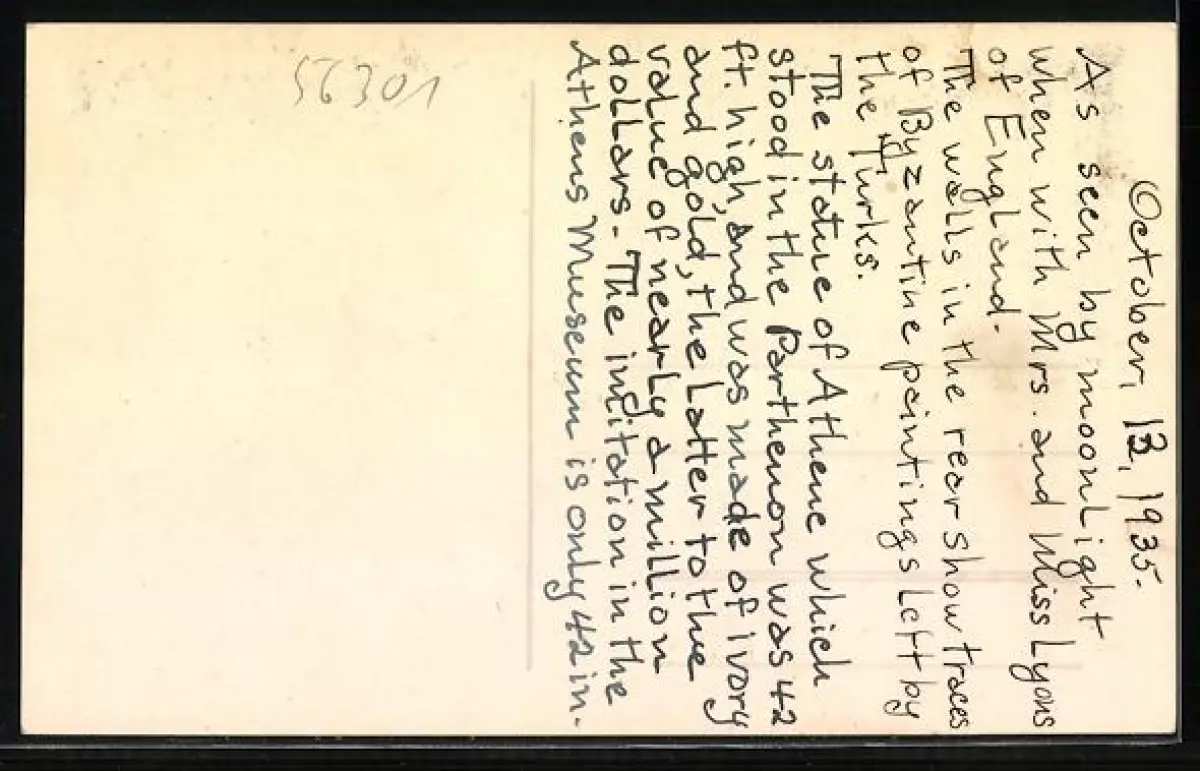 October, 13, 1935.
As seen by moonlight
when with Mrs. and Miss Lyons
of England.
The walls in the rear show traces
of Byzantine paintings left by
the Turks.
The statue of Athene which
stood in the Parthenon was 42
ft. high, and was made of ivory
and gold, the latter to the
value of nearly a million
dollars - The imitation in the
Athens Museum is only 42 in.
56301